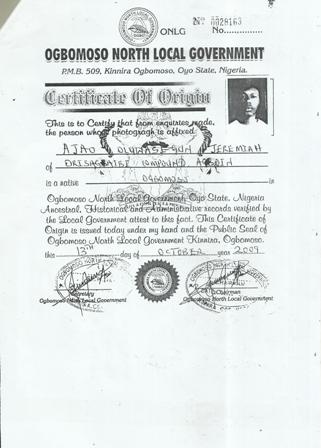 ONLG
No 0028163
No.
OGBOMOSO NORTH LOCAL GOVERNMENT
P.M.B. 509, Kinnira Ogbomoso, Oyo State, Nigeria.
Certificate Of Origin
This is to Certify that from enquiries made,
the person whose photograph is affixed.
AJAO OLUWASEGUN JEREMIAH
of COMPOUND
is a native OGBOMOSO in
Ogbomoso North Local Government, Oyo State, Nigeria
Ancestral, Historical and Administrative records verified by
the Local Government attest to this fact. This Certificate of
Origin is issued today under my hand and the Public Seal of
Ogbomoso North Local Government Kinnira, Ogbomoso.
this 13TH day of OCTOBER year 2009
Secretary
Ogbomoso North Local Government
Chairman
Ogbomoso North Local Government